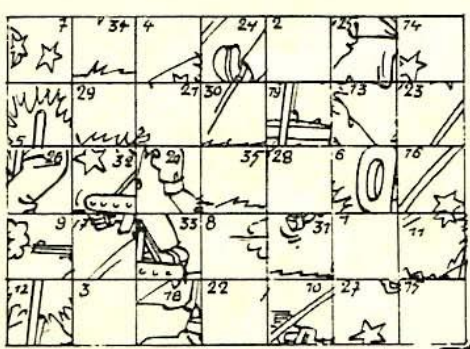 7 34 4 24 2 25 14
5 29 21 30 19 13 23
26 32 20 35 28 6 16
9 17 33 8 31 1 11
12 3 18 22 10 27 15